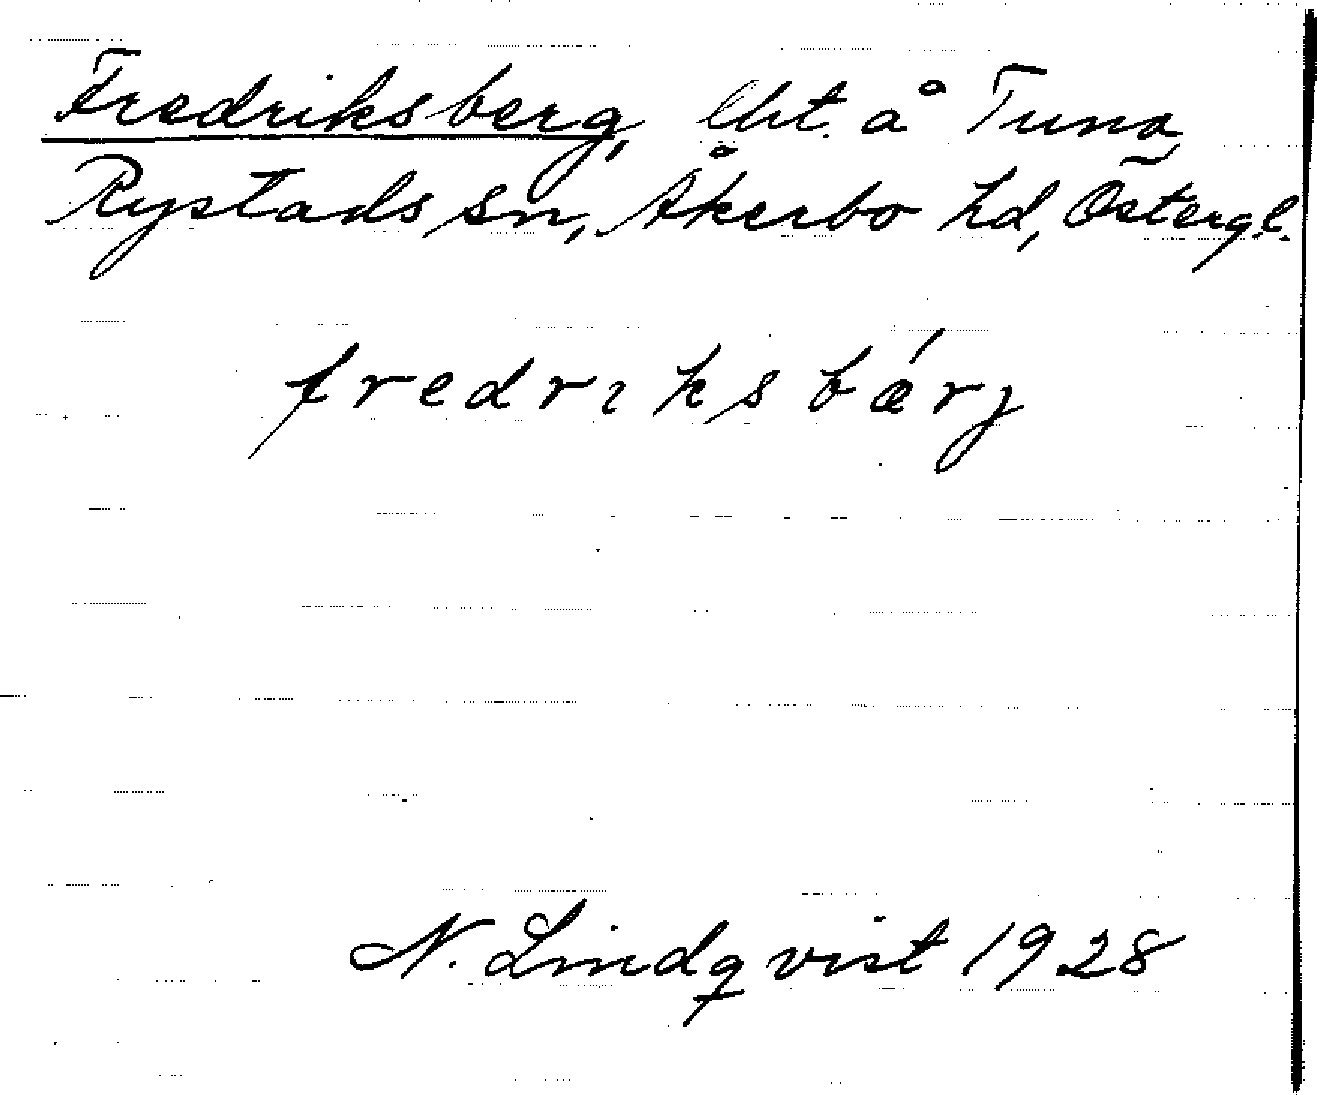 Fredriksberg, lht. å Tuna,
Rystads sn, Åkerbo hd, Östergl.
fredriksbærj
N. Lindqvist 1928